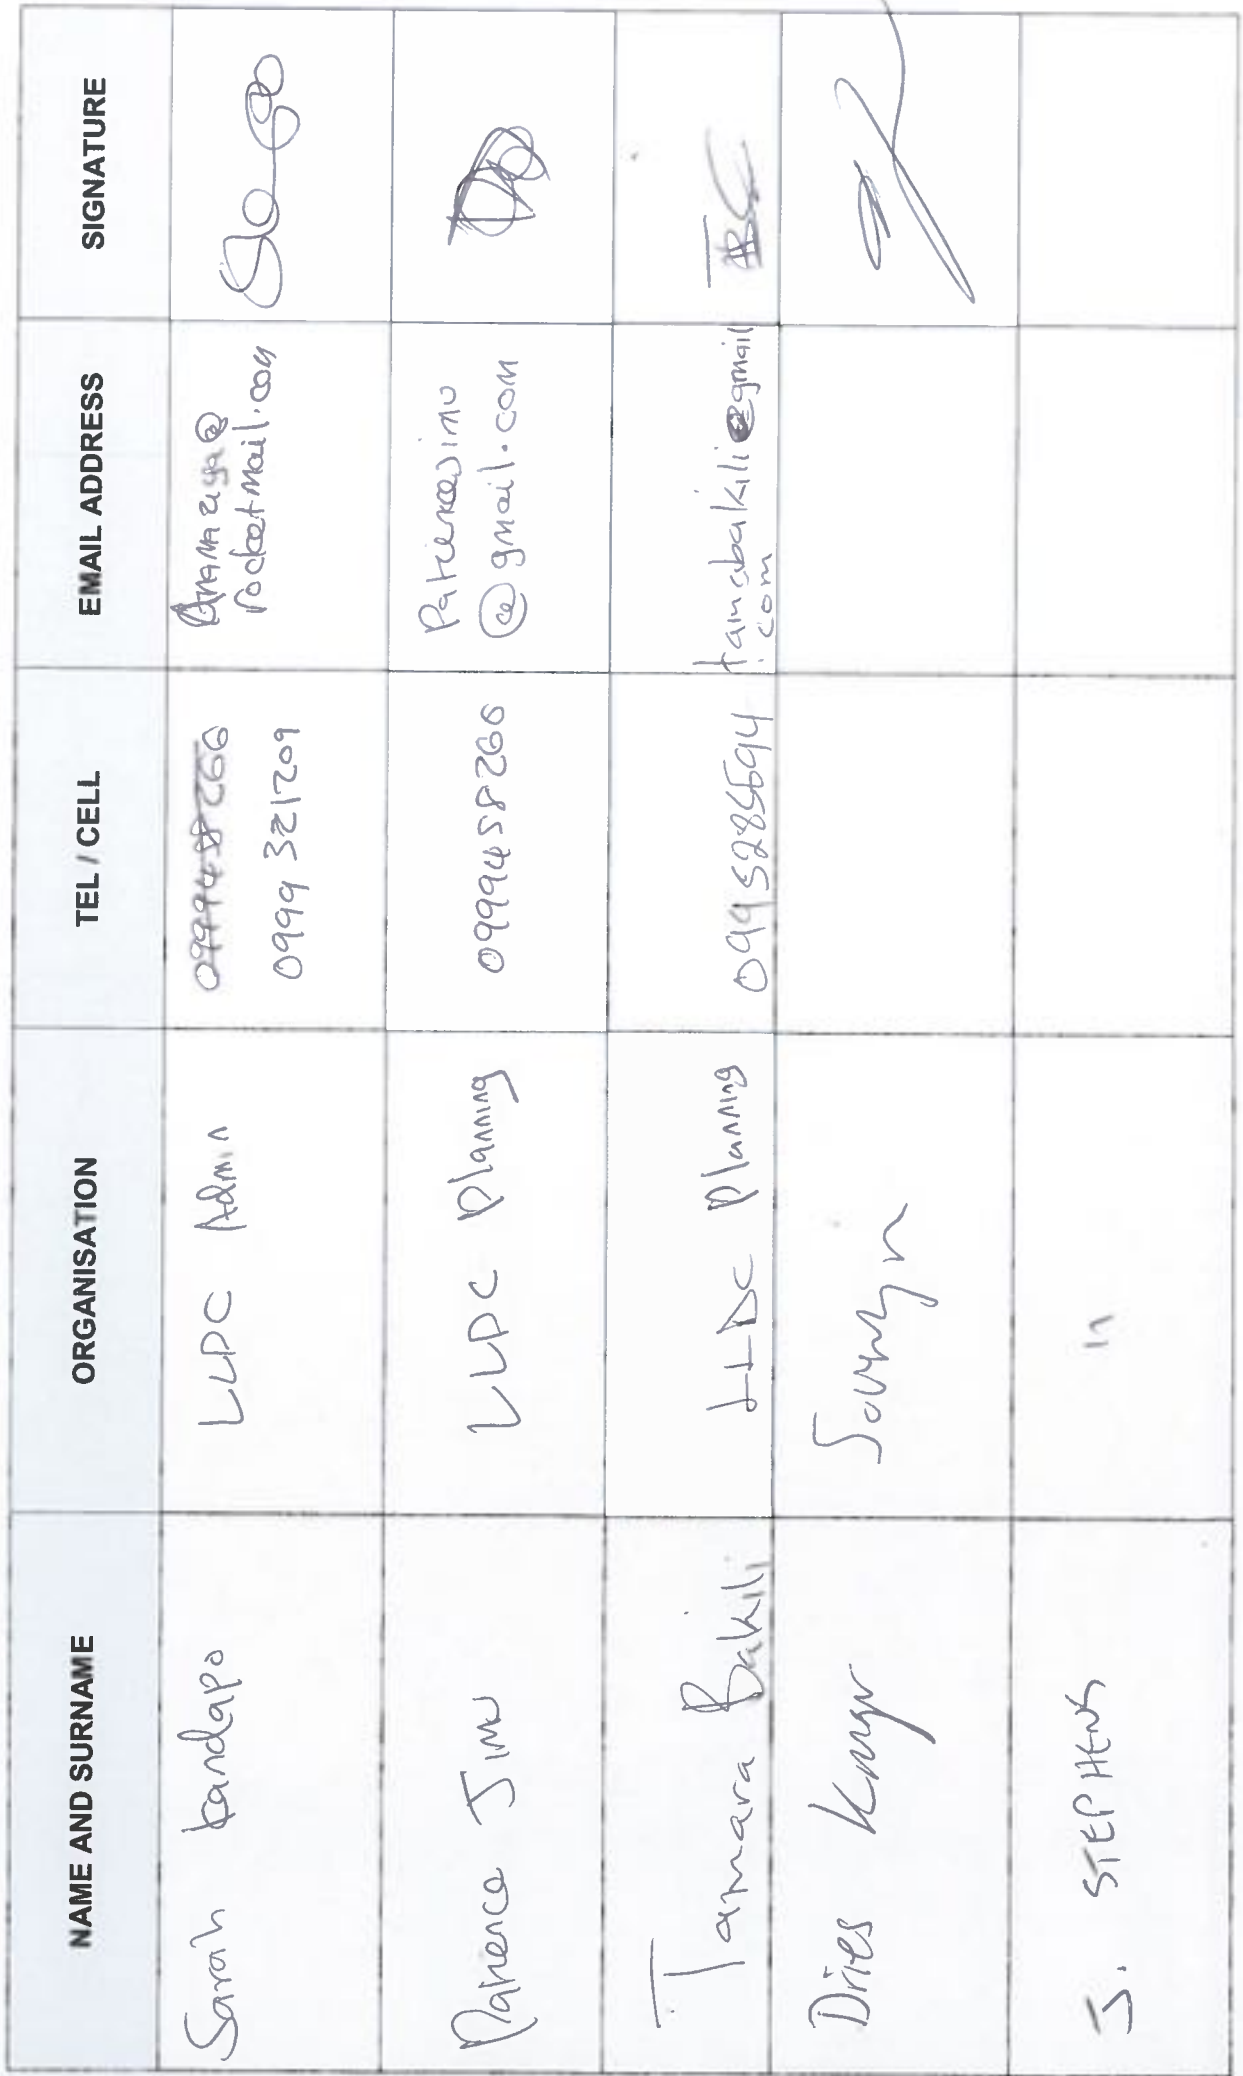 NAME AND SURNAME ORGANISATION TEL / CELL EMAIL ADDRESS SIGNATURE
Sarah Kandapo LLDC Admin 0999458266 @
0999 321209 rocketmail.com
Patience Jimu LLDC Planning 0999458266 Patiencejimu
@gmail.com
Tamara Bakili LLDC Planning 0995285694 tamabakili@gmail
.com
Dries
J. STEPHENS "